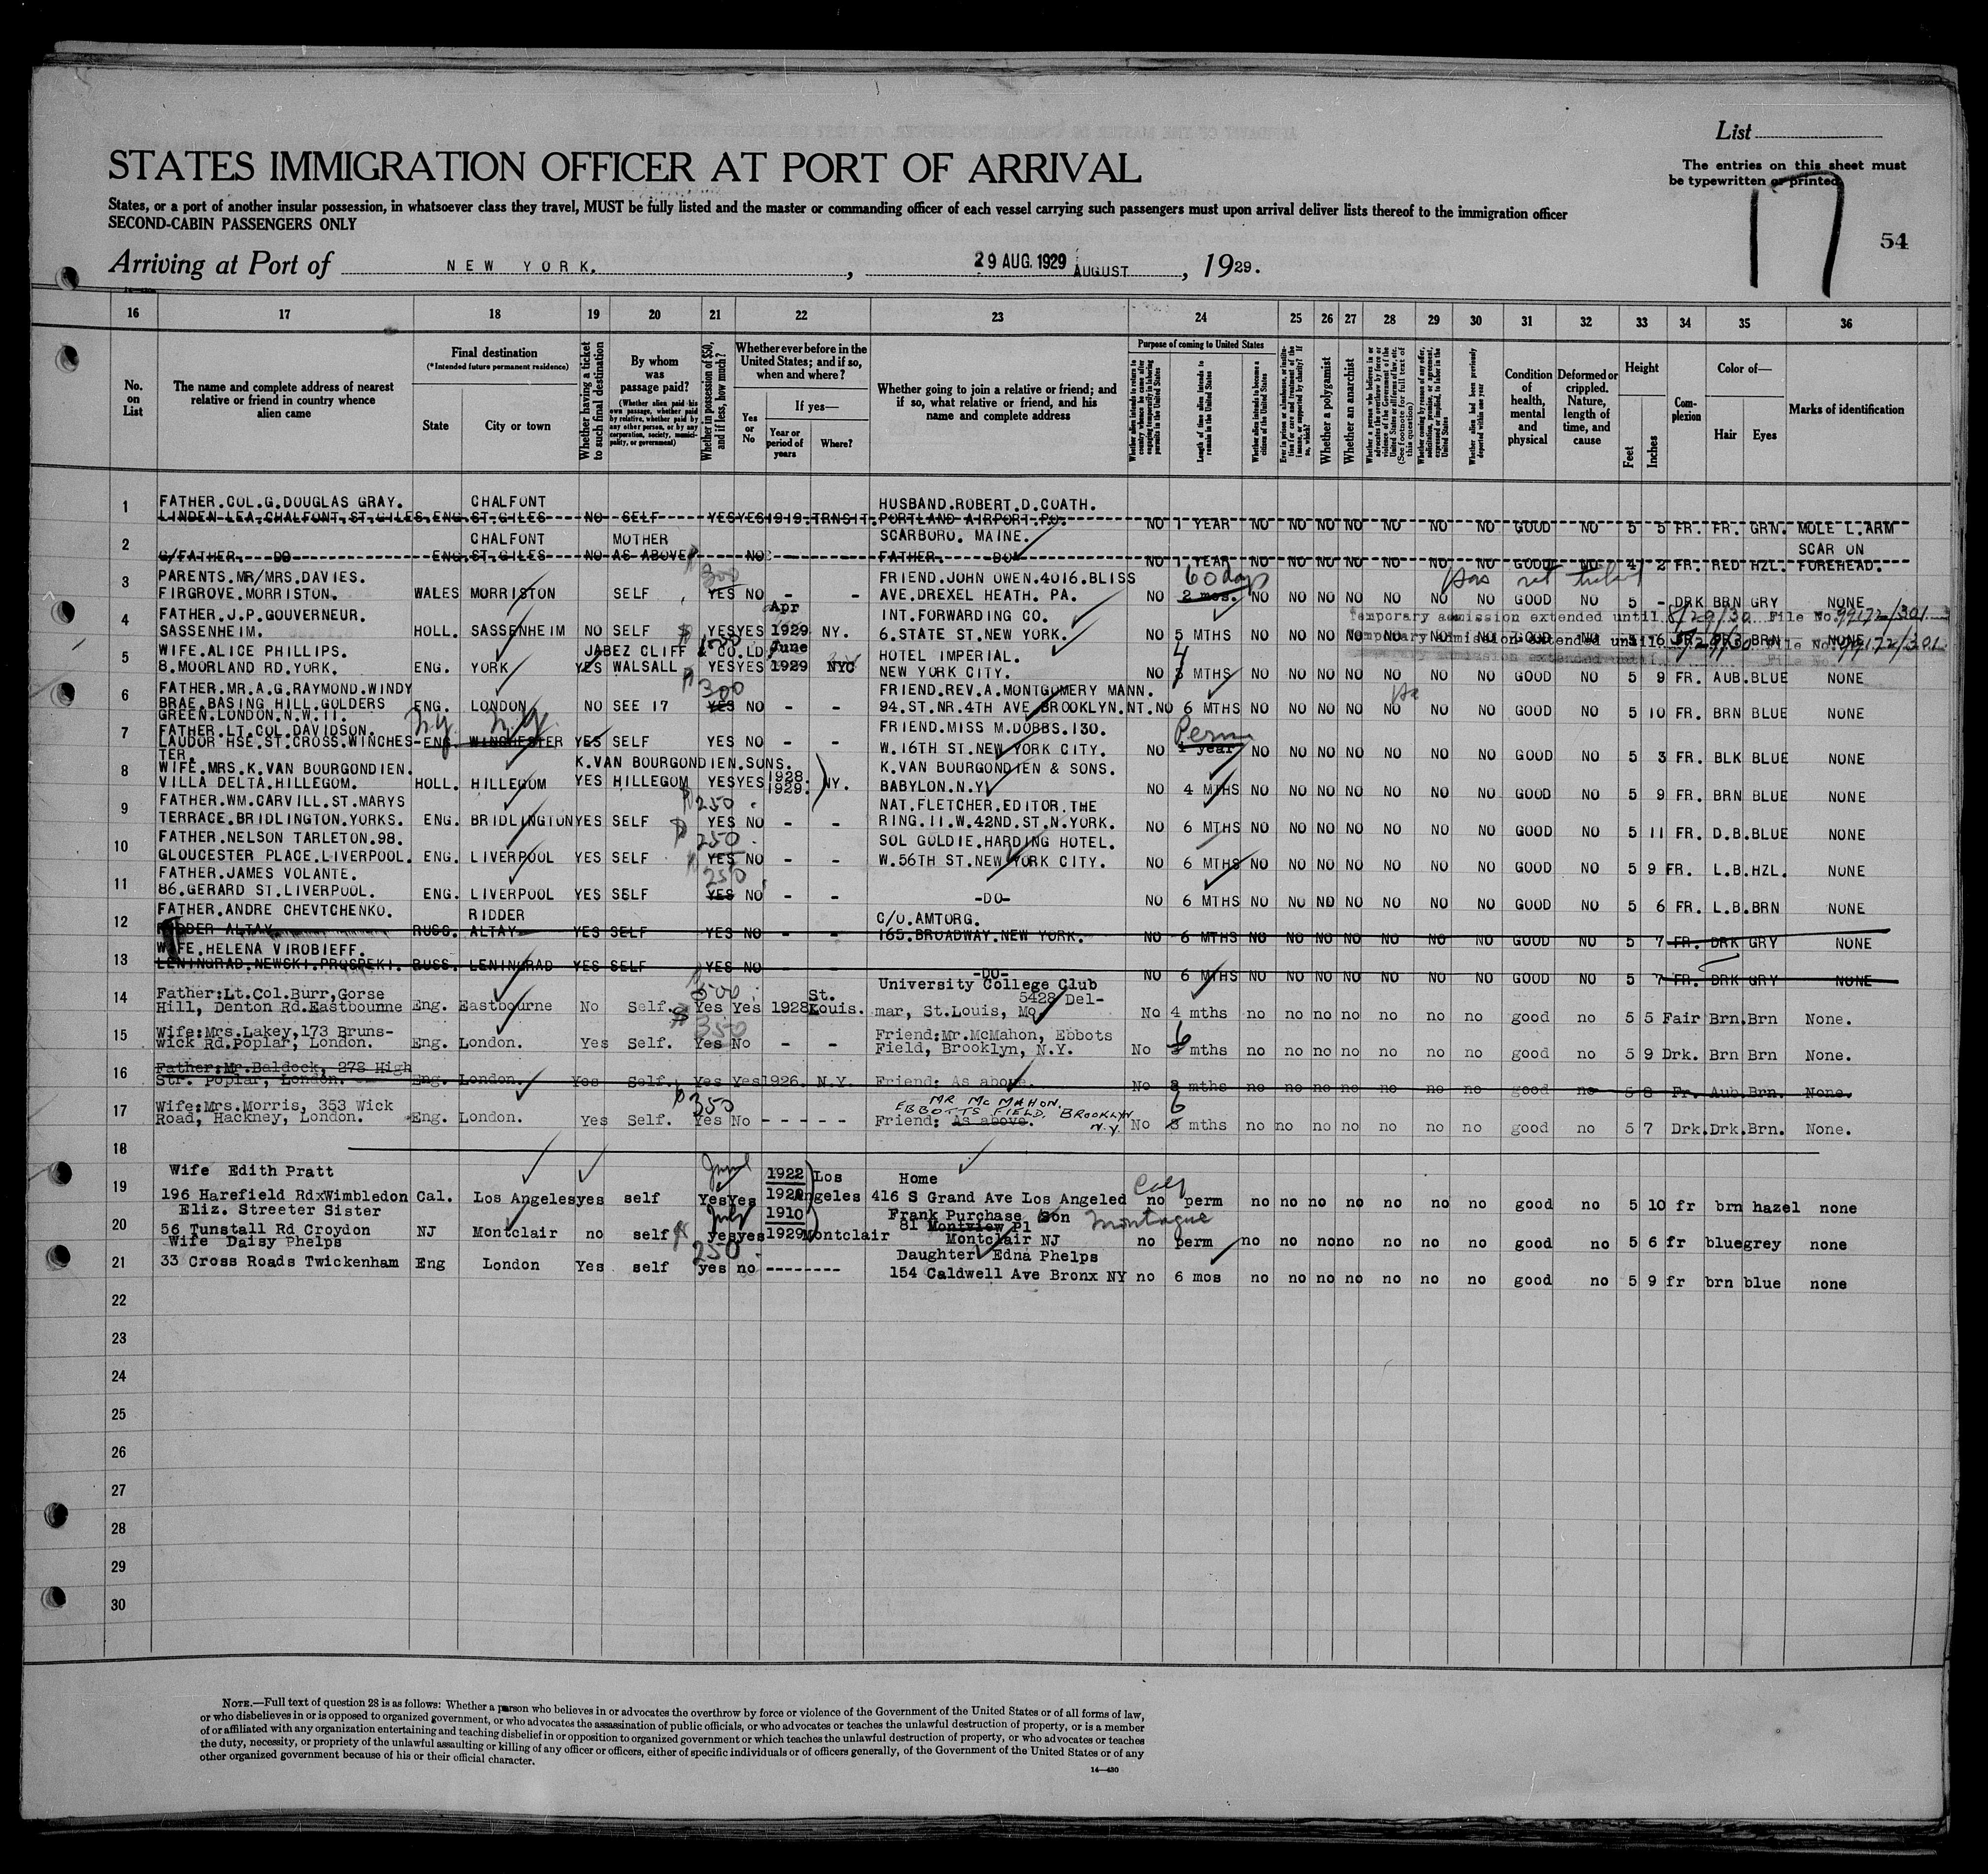 List
STATES IMMIGRATION OFFICER AT PORT OF ARRIVAL
The entries on this sheet must
be typewritten or printed
States, or a port of another insular possession, in whatsoever class they travel, MUST be fully listed and the master or commanding officer of each vessel carrying such passengers must upon arrival deliver lists thereof to the immigration officer
SECOND-CABIN PASSENGERS ONLY
17
54
Arriving at Port of NEW YORK. , 29 AUG. 1929 AUGUST , 1929.
16 17 18 19 20 21 22 23 24 25 26 27 28 29 30 31 32 33 34 35 36
No. on List
The name and complete address of nearest relative or friend in country whence alien came
Final destination
(*Intended future permanent residence)
State
City or town
Whether having a ticket to such final destination
By whom was passage paid?
(Whether alien paid his own passage, whether paid by relative, whether paid by any other person, or by any corporation, society, municipality, or government)
Whether in possession of $50, and if less, how much?
Whether ever before in the United States; and if so, when and where?
Yes or No
If yes—
Year or period of years
Where?
Whether going to join a relative or friend; and if so, what relative or friend, and his name and complete address
Purpose of coming to United States
Length of time alien intends to remain in the United States
Whether alien intends to become a citizen of the United States
Whether a polygamist
Whether an anarchist
Condition of health, mental and physical
Deformed or crippled. Nature, length of time, and cause
Height
Feet
Inches
Complexion
Color of—
Hair
Eyes
Marks of identification
1 FATHER.COL.G.DOUGLAS GRAY. CHALFONT HUSBAND.ROBERT.D.COATH.
LINDEN LEA.CHALFONT.ST.GILES. ENG. ST.GILES NO SELF YES YES 1919. TRNSIT. PORTLAND AIRPORT.PO. NO 1 YEAR NO NO NO NO NO NO NO GOOD NO 5 5 FR. FR. GRN. MOLE L.ARM
2 CHALFONT MOTHER SCARBORO. MAINE. SCAR ON
G/FATHER. DO ENG. ST.GILES NO AS ABOVE NO - - FATHER. -DO- NO 1 YEAR NO NO NO NO NO NO NO GOOD NO 4 2 FR. RED HZL. FOREHEAD.
3 PARENTS.MR/MRS.DAVIES. 300 FRIEND.JOHN OWEN.4016.BLISS 60 days
FIRGROVE.MORRISTON. WALES MORRISTON SELF YES NO - - AVE.DREXEL HEATH. PA. NO 2 mos. NO NO NO NO NO NO NO GOOD NO 5 - DRK BRN GRY NONE
4 FATHER.J.P.GOUVERNEUR. Apr INT.FORWARDING CO. Temporary admission extended until 8/29/30 File No. 99172/301
SASSENHEIM. HOLL. SASSENHEIM NO SELF YES YES 1929 NY. 6.STATE ST.NEW YORK. NO 5 MTHS NO NO NO NO NO NO NO GOOD NO
5 WIFE.ALICE PHILLIPS. JABEZ CLIFF & CO.LD. June HOTEL IMPERIAL. 4
8.MOORLAND RD.YORK. ENG. YORK YES WALSALL YES YES 1929 NYC NEW YORK CITY. NO MTHS NO NO NO NO NO NO NO GOOD NO 5 9 FR. AUB. BLUE NONE
6 FATHER.MR.A.G.RAYMOND.WINDY 300 FRIEND.REV.A.MONTGOMERY MANN.
BRAE.BASING HILL.GOLDERS ENG. LONDON NO SEE 17 YES NO - - 94.ST.NR.4TH AVE.BROOKLYN.NT. NO 6 MTHS NO NO NO NO NO NO NO GOOD NO 5 10 FR. BRN BLUE NONE
GREEN.LONDON.N.W.11.
7 FATHER.LT.COL.DAVIDSON. N.Y. N.Y. FRIEND.MISS M.DOBBS.130. Perm
LAUDOR HSE.ST.CROSS.WINCHES- ENG WINCHESTER YES SELF YES NO - - W.16TH ST.NEW YORK CITY. NO 1 year NO NO NO NO NO NO NO GOOD NO 5 3 FR. BLK BLUE NONE
TER.
8 WIFE.MRS.K.VAN BOURGONDIEN. K.VAN BOURGONDIEN.SONS. 1928. K.VAN BOURGONDIEN & SONS.
VILLA DELTA.HILLEGOM. HOLL. HILLEGOM YES HILLEGOM YES YES 1929. NY. BABYLON.N.Y. NO 4 MTHS NO NO NO NO NO NO NO GOOD NO 5 9 FR. BRN BLUE NONE
9 FATHER.WM.CARVILL.ST.MARYS $250 NAT.FLETCHER.EDITOR.THE
TERRACE.BRIDLINGTON.YORKS. ENG. BRIDLINGTON YES SELF YES NO - - RING.11.W.42ND.ST.N.YORK. NO 6 MTHS NO NO NO NO NO NO NO GOOD NO 5 11 FR. D.B. BLUE NONE
10 FATHER.NELSON TARLETON.98. $250 SOL GOLDIE.HARDING HOTEL.
GLOUCESTER PLACE.LIVERPOOL. ENG. LIVERPOOL YES SELF YES NO - - W.56TH ST.NEW YORK CITY. NO 6 MTHS NO NO NO NO NO NO NO GOOD NO 5 9 FR. L.B. HZL. NONE
11 FATHER.JAMES VOLANTE. 250
86.GERARD ST.LIVERPOOL. ENG. LIVERPOOL YES SELF YES NO - - -DO- NO 6 MTHS NO NO NO NO NO NO NO GOOD NO 5 6 FR. L.B. BRN NONE
12 FATHER.ANDRE CHEVTCHENKO. RIDDER C/O.AMTORG.
RIDDER ALTAY RUSS. ALTAY YES SELF YES NO - - 165.BROADWAY.NEW YORK. NO 6 MTHS NO NO NO NO NO NO NO GOOD NO 5 7 FR. DRK GRY NONE
13 WIFE.HELENA VIROBIEFF.
LENINGRAD.NEWSKI.PROSPEKI. RUSS. LENINGRAD YES SELF YES NO - - -DO- NO 6 MTHS NO NO NO NO NO NO NO GOOD NO 5 7 FR. DRK GRY NONE
14 Father:Lt.Col.Burr,Gorse 500 St. University College Club 5428 Del-
Hill, Denton Rd.Eastbourne Eng. Eastbourne No Self. Yes Yes 1928 Louis. mar, St.Louis, Mo. No 4 mths no no no no no no no good no 5 5 Fair Brn. Brn None.
15 Wife:Mrs.Lakey,173 Bruns- $350 Friend:Mr.McMahon, Ebbots 6
wick Rd.Poplar, London. Eng. London. Yes Self. Yes No - - Field, Brooklyn, N.Y. No mths no no no no no no no good no 5 9 Drk. Brn Brn None.
16 Father:Mr.Baldock, 278 High
Str. Poplar, London. Eng. London. Yes Self. Yes Yes 1926. N.Y. Friend: As above. No 8 mths no no no no no no no good no 5 8 Fr. Aub. Brn. None.
17 Wife:Mrs.Morris, 353 Wick $350 MR MCMAHON. EBBOTTS FIELD, BROOKLYN N.Y. 6
Road, Hackney, London. Eng. London. Yes Self. Yes No - - - - - Friend: As above. No 8 mths no no no no no no no good no 5 7 Drk. Drk. Brn. None.
18
19 Wife Edith Pratt 1922 Los Home Calf
196 Harefield RdxWimbledon Cal. Los Angeles yes self Yes Yes 1929 Angeles 416 S Grand Ave Los Angeled no perm no no no no no no no good no 5 10 fr brn hazel none
20 Eliz. Streeter Sister July 1910 Frank Purchase Son Montague
56 Tunstall Rd Croydon NJ Montclair no self yes yes 1929 Montclair 81 Montview Pl
Montclair NJ no perm no no no no no no no good no 5 6 fr blue grey none
21 Wife Daisy Phelps 250 Daughter Edna Phelps
33 Cross Roads Twickenham Eng London Yes self yes no -------- 154 Caldwell Ave Bronx NY no 6 mos no no no no no no no good no 5 9 fr brn blue none
22
23
24
25
26
27
28
29
30
NOTE.—Full text of question 28 is as follows: Whether a person who believes in or advocates the overthrow by force or violence of the Government of the United States or of all forms of law,
or who disbelieves in or is opposed to organized government, or who advocates the assassination of public officials, or who advocates or teaches the unlawful destruction of property, or is a member
of or affiliated with any organization entertaining and teaching disbelief in or opposition to organized government or which teaches the unlawful destruction of property, or who advocates or teaches
the duty, necessity, or propriety of the unlawful assaulting or killing of any officer or officers, either of specific individuals or of officers generally, of the Government of the United States or of any
other organized government because of his or their official character.
14—430